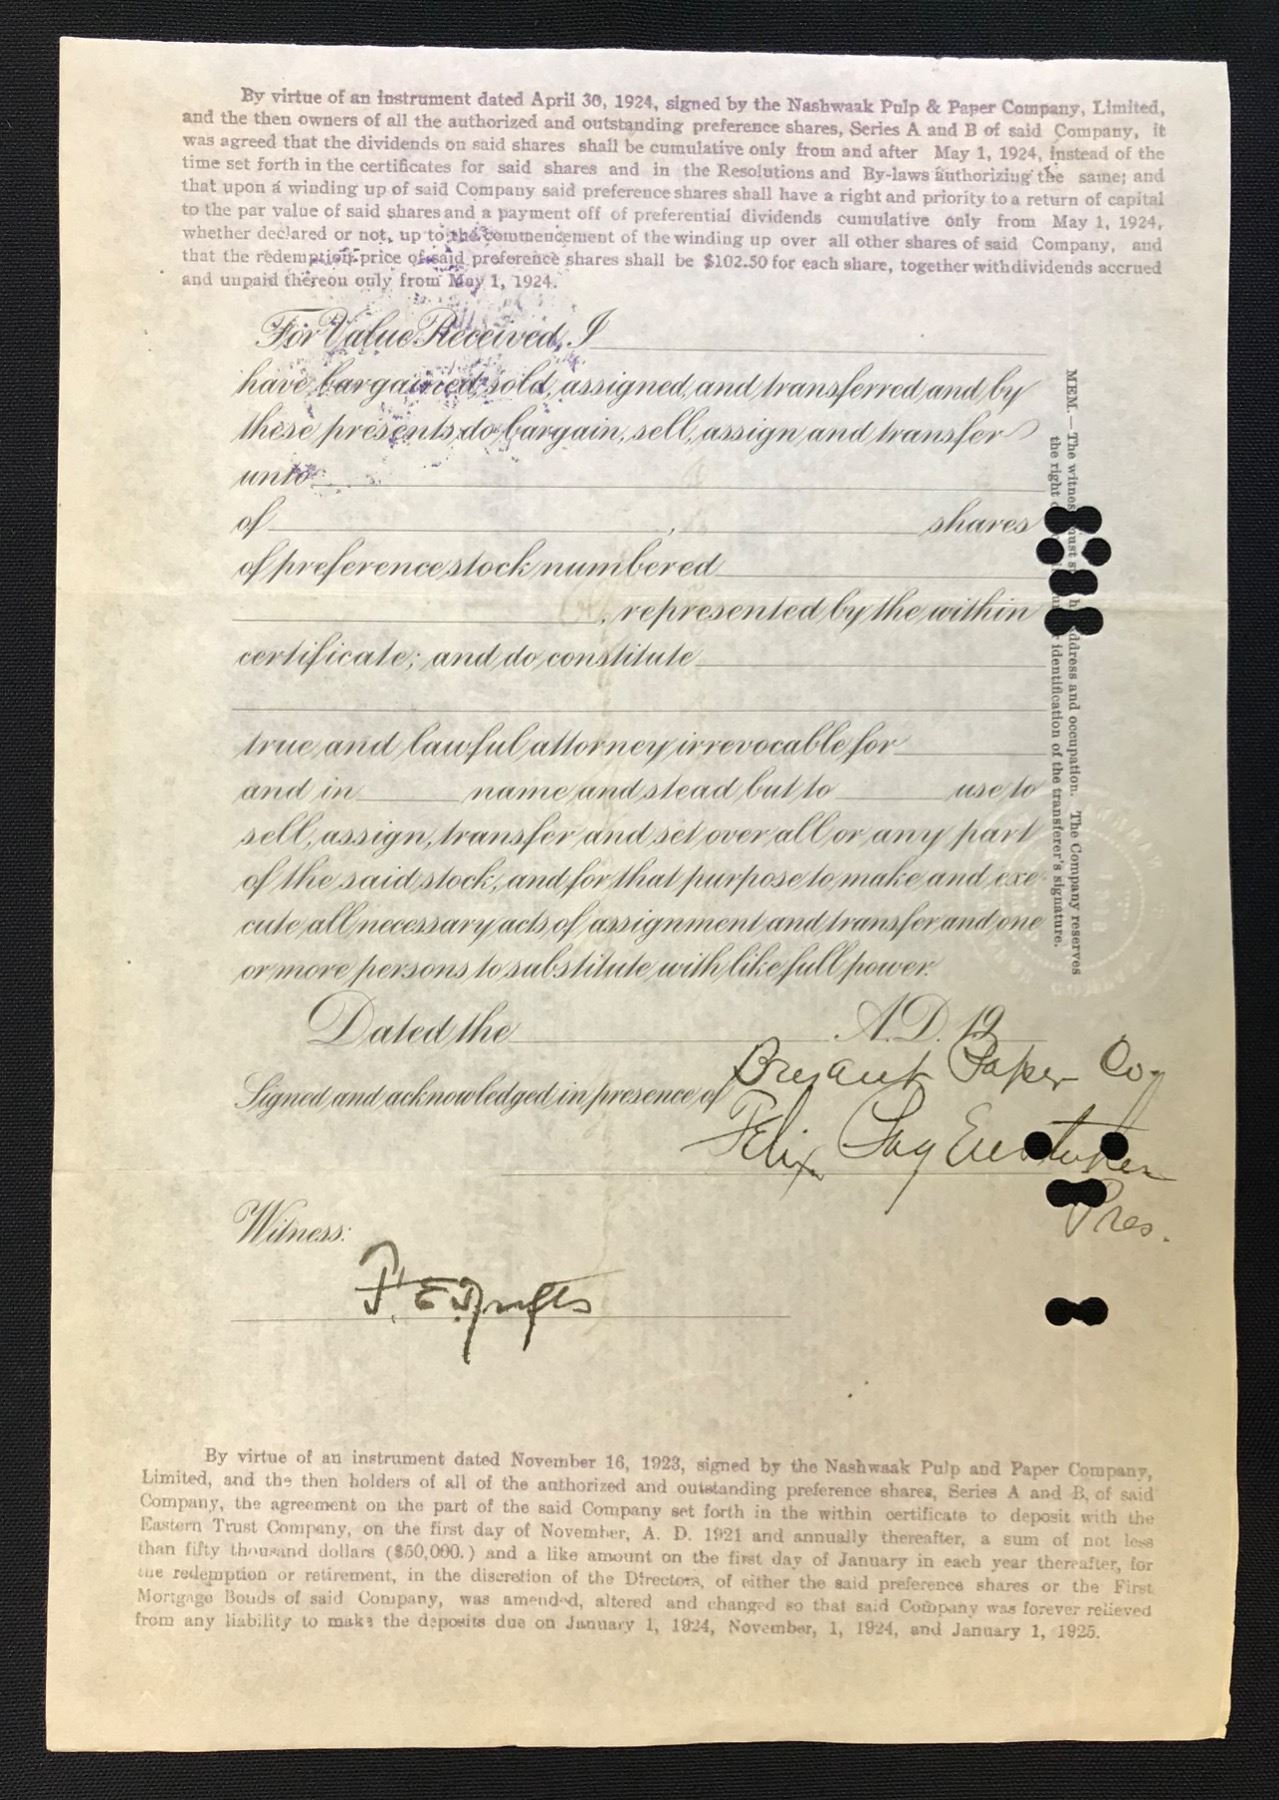 By virtue of an instrument dated April 30, 1924, signed by the Nashwaak Pulp & Paper Company, Limited,
and the then owners of all the authorized and outstanding preference shares, Series A and B of said Company, it
was agreed that the dividends on said shares shall be cumulative only from and after May 1, 1924, instead of the
time set forth in the certificates for said shares and in the Resolutions and By-laws authorizing the same; and
that upon a winding up of said Company said preference shares shall have a right and priority to a return of capital
to the par value of said shares and a payment off of preferential dividends cumulative only from May 1, 1924,
whether declared or not, up to the commencement of the winding up over all other shares of said Company, and
that the redemption price of said preference shares shall be $102.50 for each share, together with dividends accrued
and unpaid thereon only from May 1, 1924.
For Value Received, I
have bargained, sold, assigned, and transferred and by
these presents do bargain, sell, assign and transfer
unto
of , shares
of preference stock numbered
, represented by the within
certificate; and do constitute
true and lawful attorney irrevocable for
and in name and stead but to use to
sell, assign, transfer and set over all or any part
of the said stock, and for that purpose to make and exe-
cute all necessary acts of assignment and transfer and one
or more persons to substitute with like full power.
Dated the A.D. 19
Signed and acknowledged in presence of
Bryant Paper Co.
Felix
Pres.
Witness:
MEM.—The witness must address and occupation. The Company reserves
the right identification of the transferer's signature.
By virtue of an instrument dated November 16, 1923, signed by the Nashwaak Pulp and Paper Company,
Limited, and the then holders of all of the authorized and outstanding preference shares, Series A and B, of said
Company, the agreement on the part of the said Company set forth in the within certificate to deposit with the
Eastern Trust Company, on the first day of November, A. D. 1921 and annually thereafter, a sum of not less
than fifty thousand dollars ($50,000.) and a like amount on the first day of January in each year thereafter, for
the redemption or retirement, in the discretion of the Directors, of either the said preference shares or the First
Mortgage Bonds of said Company, was amended, altered and changed so that said Company was forever relieved
from any liability to make the deposits due on January 1, 1924, November, 1, 1924, and January 1, 1925.